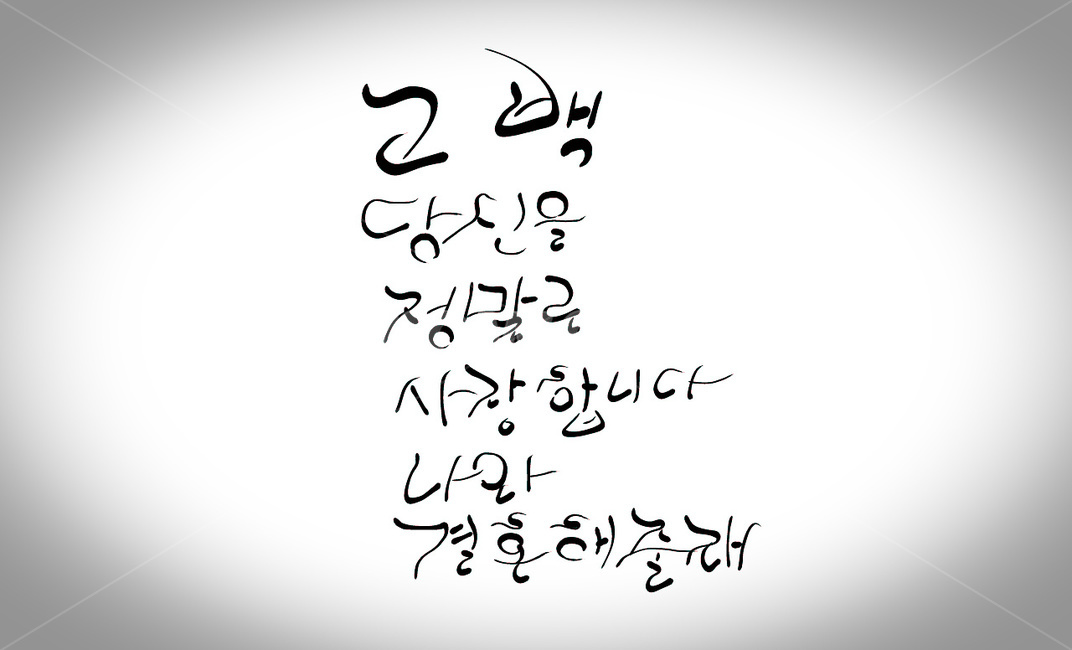 고백
당신을
정말로
사랑합니다
나와
결혼해줄래